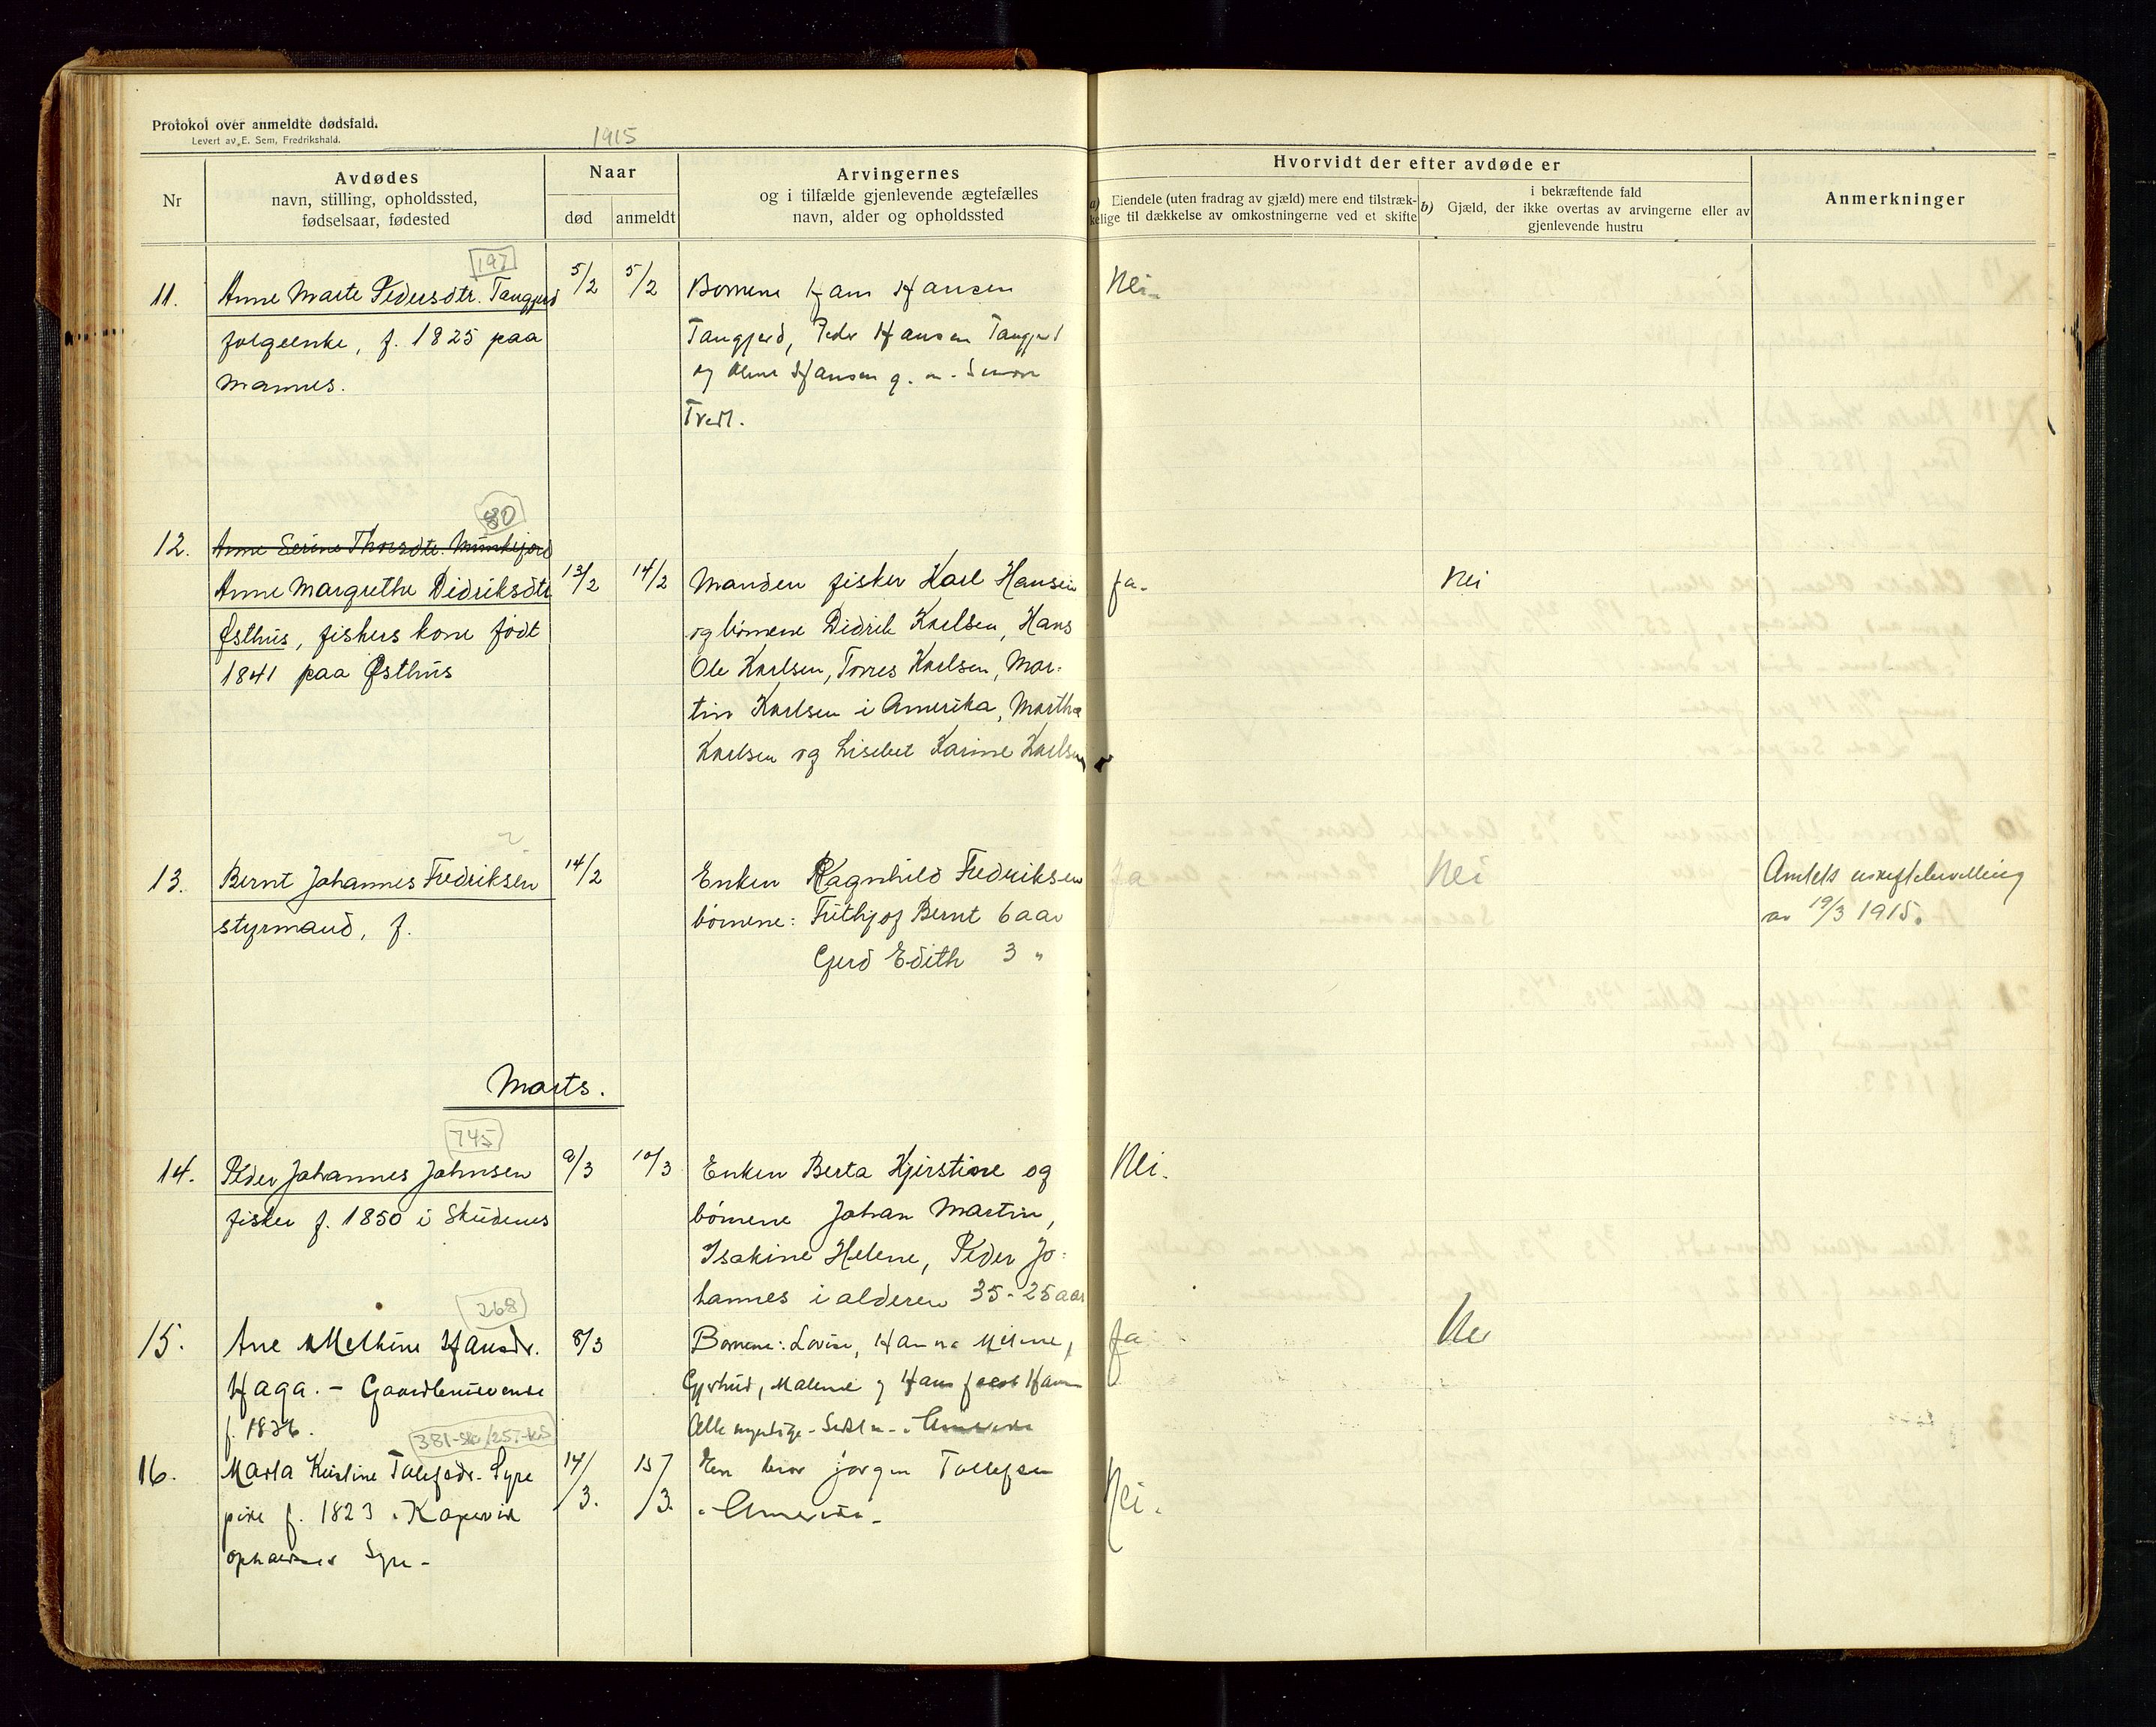 Protokol over anmeldte dødsfald.
Levert av E. Sem, Fredrikshald.
1915
Nr
Avdødes
navn, stilling, opholdssted,
fødselsaar, fødested
Naar
død
anmeldt
Arvingernes
og i tilfælde gjenlevende ægtefælles
navn, alder og opholdssted
Hvorvidt der efter avdøde er
a) Eiendele (uten fradrag av gjæld) mere end tilstræk-
kelige til dækkelse av omkostningerne ved et skifte
b) i bekræftende fald
Gjæld, der ikke overtas av arvingerne eller av
gjenlevende hustru
Anmerkninger
197
11. Anne Marte Pedersdtr. Tangjerd 5/2 5/2 Børnene Hans Hansen Nei.
folgeenke, f. 1825 paa Tangjerd, Peder Hansen Tangjerd
Mannes. og Hansen g. m. Simon
Tvedt.
80
12. Anne Serine Thorsdtr. Munkejord
Anne Margrethe Didriksdtr 13/2 14/2 Manden fisker Karl Hansen Ja. Nei
Østhus, fiskers kone født og børnene Didrik Karlsen, Hans
1841 paa Østhus Ole Karlsen, Torres Karlsen, Mar-
tin Karlsen i Amerika, Martha
Karlsen og Lisebet Karine Karlsen
13. Bernt Johannes Fredriksen 14/2 Enken Ragnhild Fredriksen Ja Nei Amtets uskiftebevilling
styrmand, f. børnene: Frithjof Bernt 6 aar av 19/3 1915.
Gerd Edith 3 "
Marts.
745
14. Peder Johannes Johnsen 9/3 10/3 Enken Berta Kjirstine og Nei.
fisker f. 1850 i Skudenes børnene Johan Martin,
Isakine Helene, Peder Jo-
hannes i alderen 35-25 aar
268
15. Ane Melkine Hansdr. 8/3 Børnene: Lovise, Hanna Ja Nei
Haga. - Gaardbrukerenke Gjertrud, Malene og Hans Jacob
f. 1836. Alle myndige - Amerika
381-Sku/25.-KS
16. Marta Kristine Tollefsdr. Syre 14/3. 15/3. En bror Jørgen Tollefsen Nei.
pike f. 1823 i Kopervik i Amerika -
Syre -